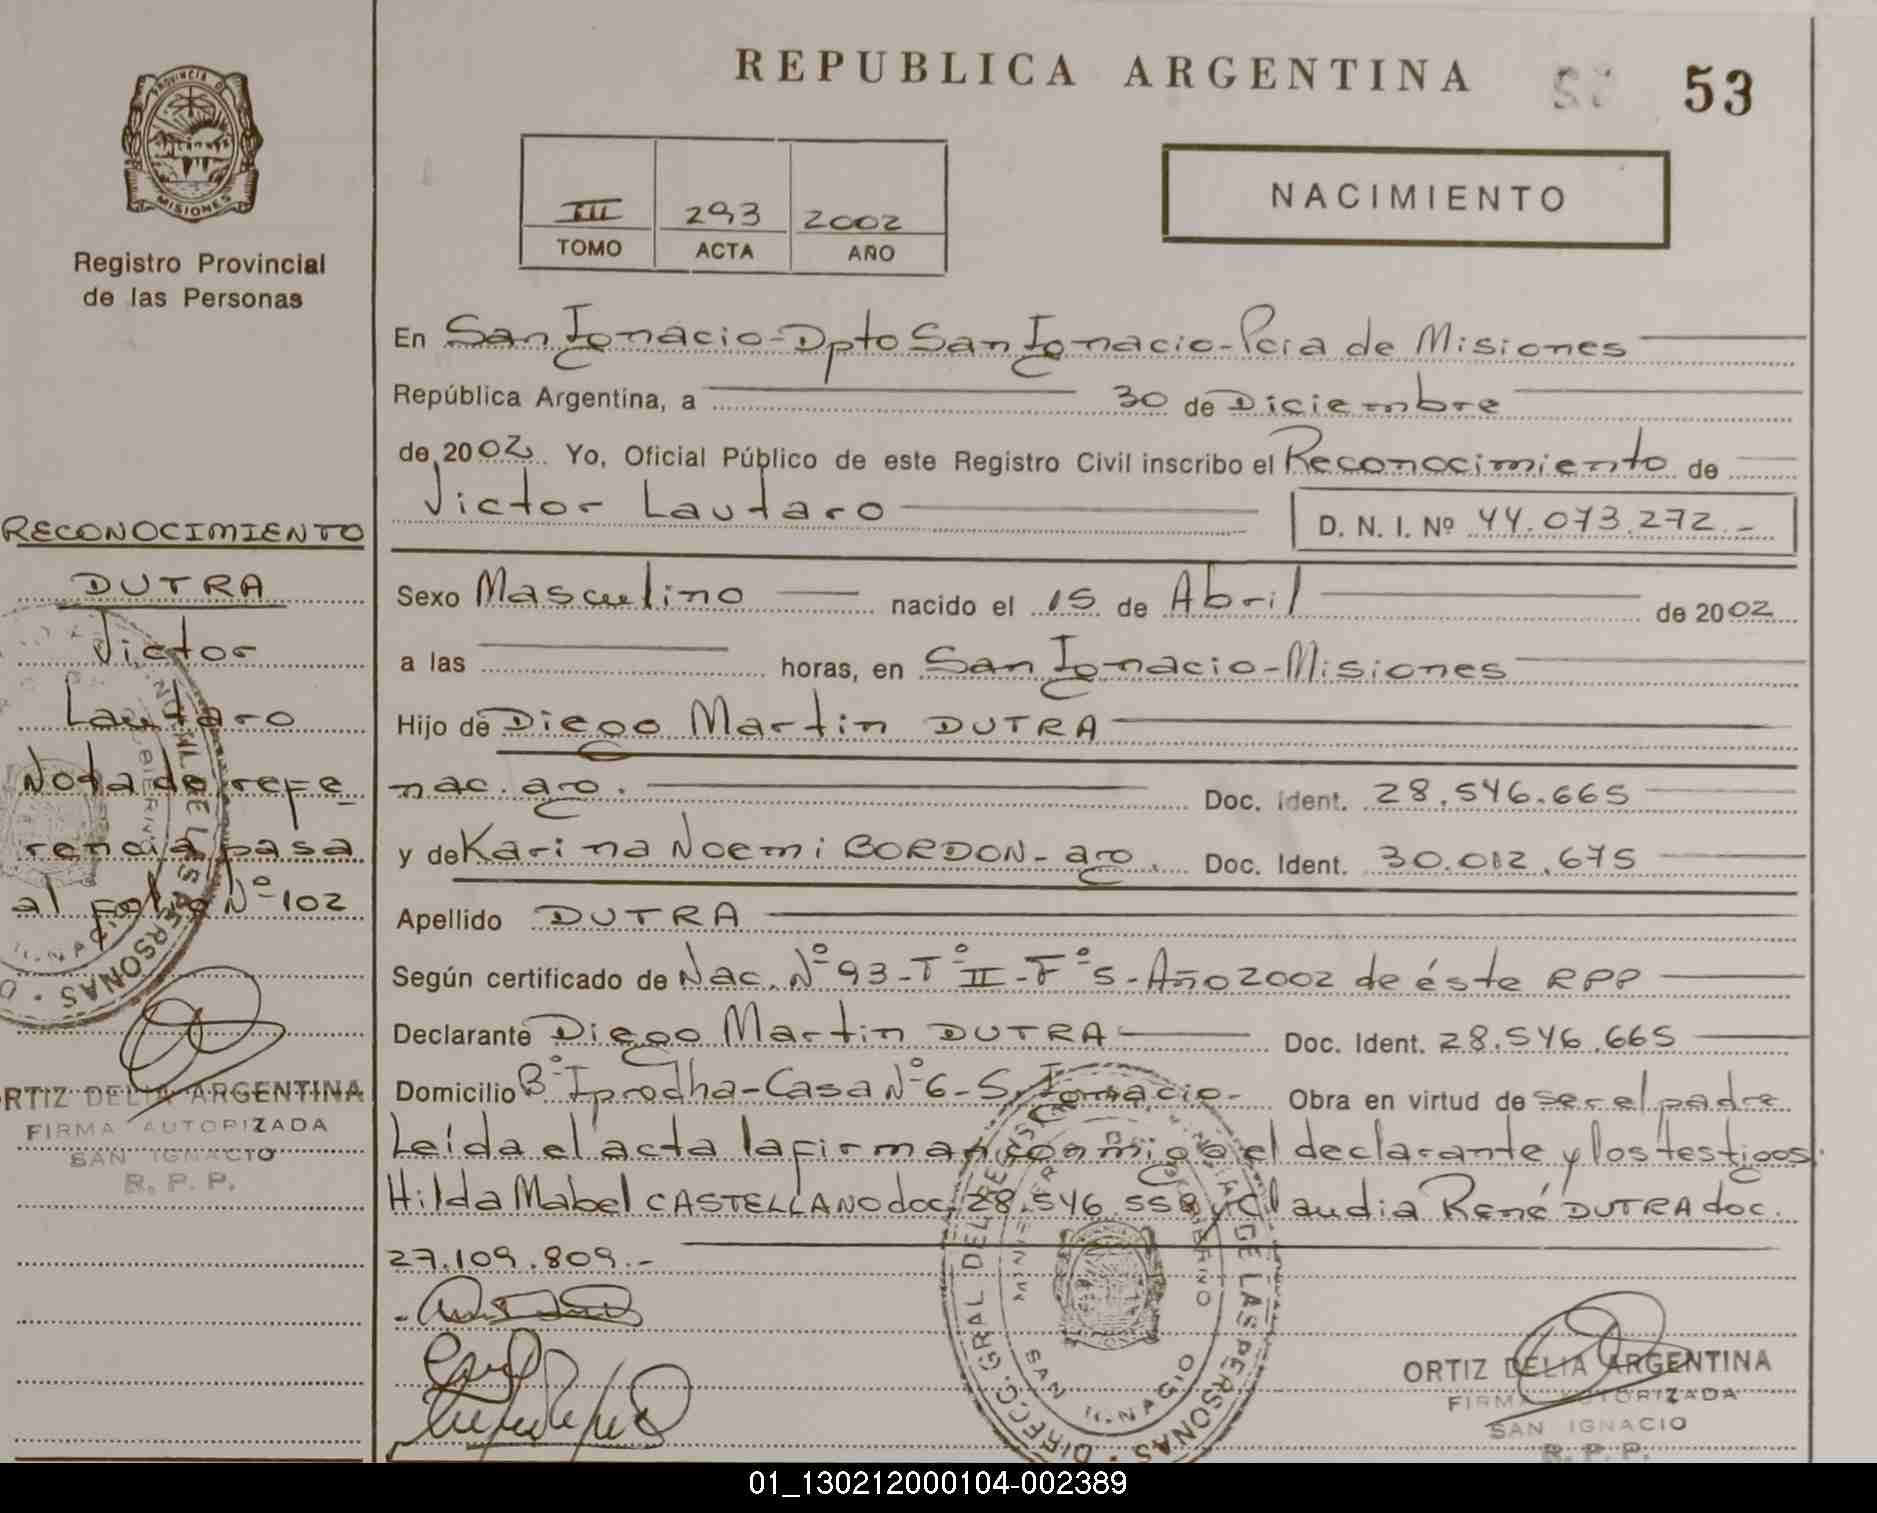 REPUBLICA ARGENTINA
53
PROVINCIA D
MISIONES
Registro Provincial
de las Personas
III 293 2002
TOMO ACTA AÑO
NACIMIENTO
En San Ignacio-Dpto San Ignacio-Pcia de Misiones
República Argentina, a 30 de Diciembre
de 2002. Yo, Oficial Público de este Registro Civil inscribo el Reconocimiento de
Victor Lautaro
D. N. I. Nº 44.073.272.-
Sexo Masculino nacido el 15 de Abril de 2002
a las horas, en San Ignacio-Misiones
Hijo de Diego Martin DUTRA
nac. arg. Doc. Ident. 28.546.665
y de Karina Noemi BORDON- arg. Doc. Ident. 30.012.675
Apellido DUTRA
Según certificado de Nac. Nº 93-Tº II-Fº 5-Año 2002 de éste RPP
Declarante Diego Martin DUTRA Doc. Ident. 28.546.665
Domicilio Bº Iprodha-Casa Nº 6-S. Ignacio- Obra en virtud de ser el padre
Leída el acta la firman conmigo el declarante y los testigos
Hilda Mabel CASTELLANO doc. 28.546.558 y Claudia René DUTRA doc.
27.109.809.-
RECONOCIMIENTO
DUTRA
Victor
Lautaro
Nota de refe
rencia pasa
al folio Nº 102
ORTIZ DELIA ARGENTINA
FIRMA AUTORIZADA
SAN IGNACIO
R. P. P.
DIRECC. GRAL DEL REG. DE LAS PERSONAS
SAN IGNACIO
ORTIZ DELIA ARGENTINA
FIRMA AUTORIZADA
SAN IGNACIO
R. P. P.
01_130212000104-002389